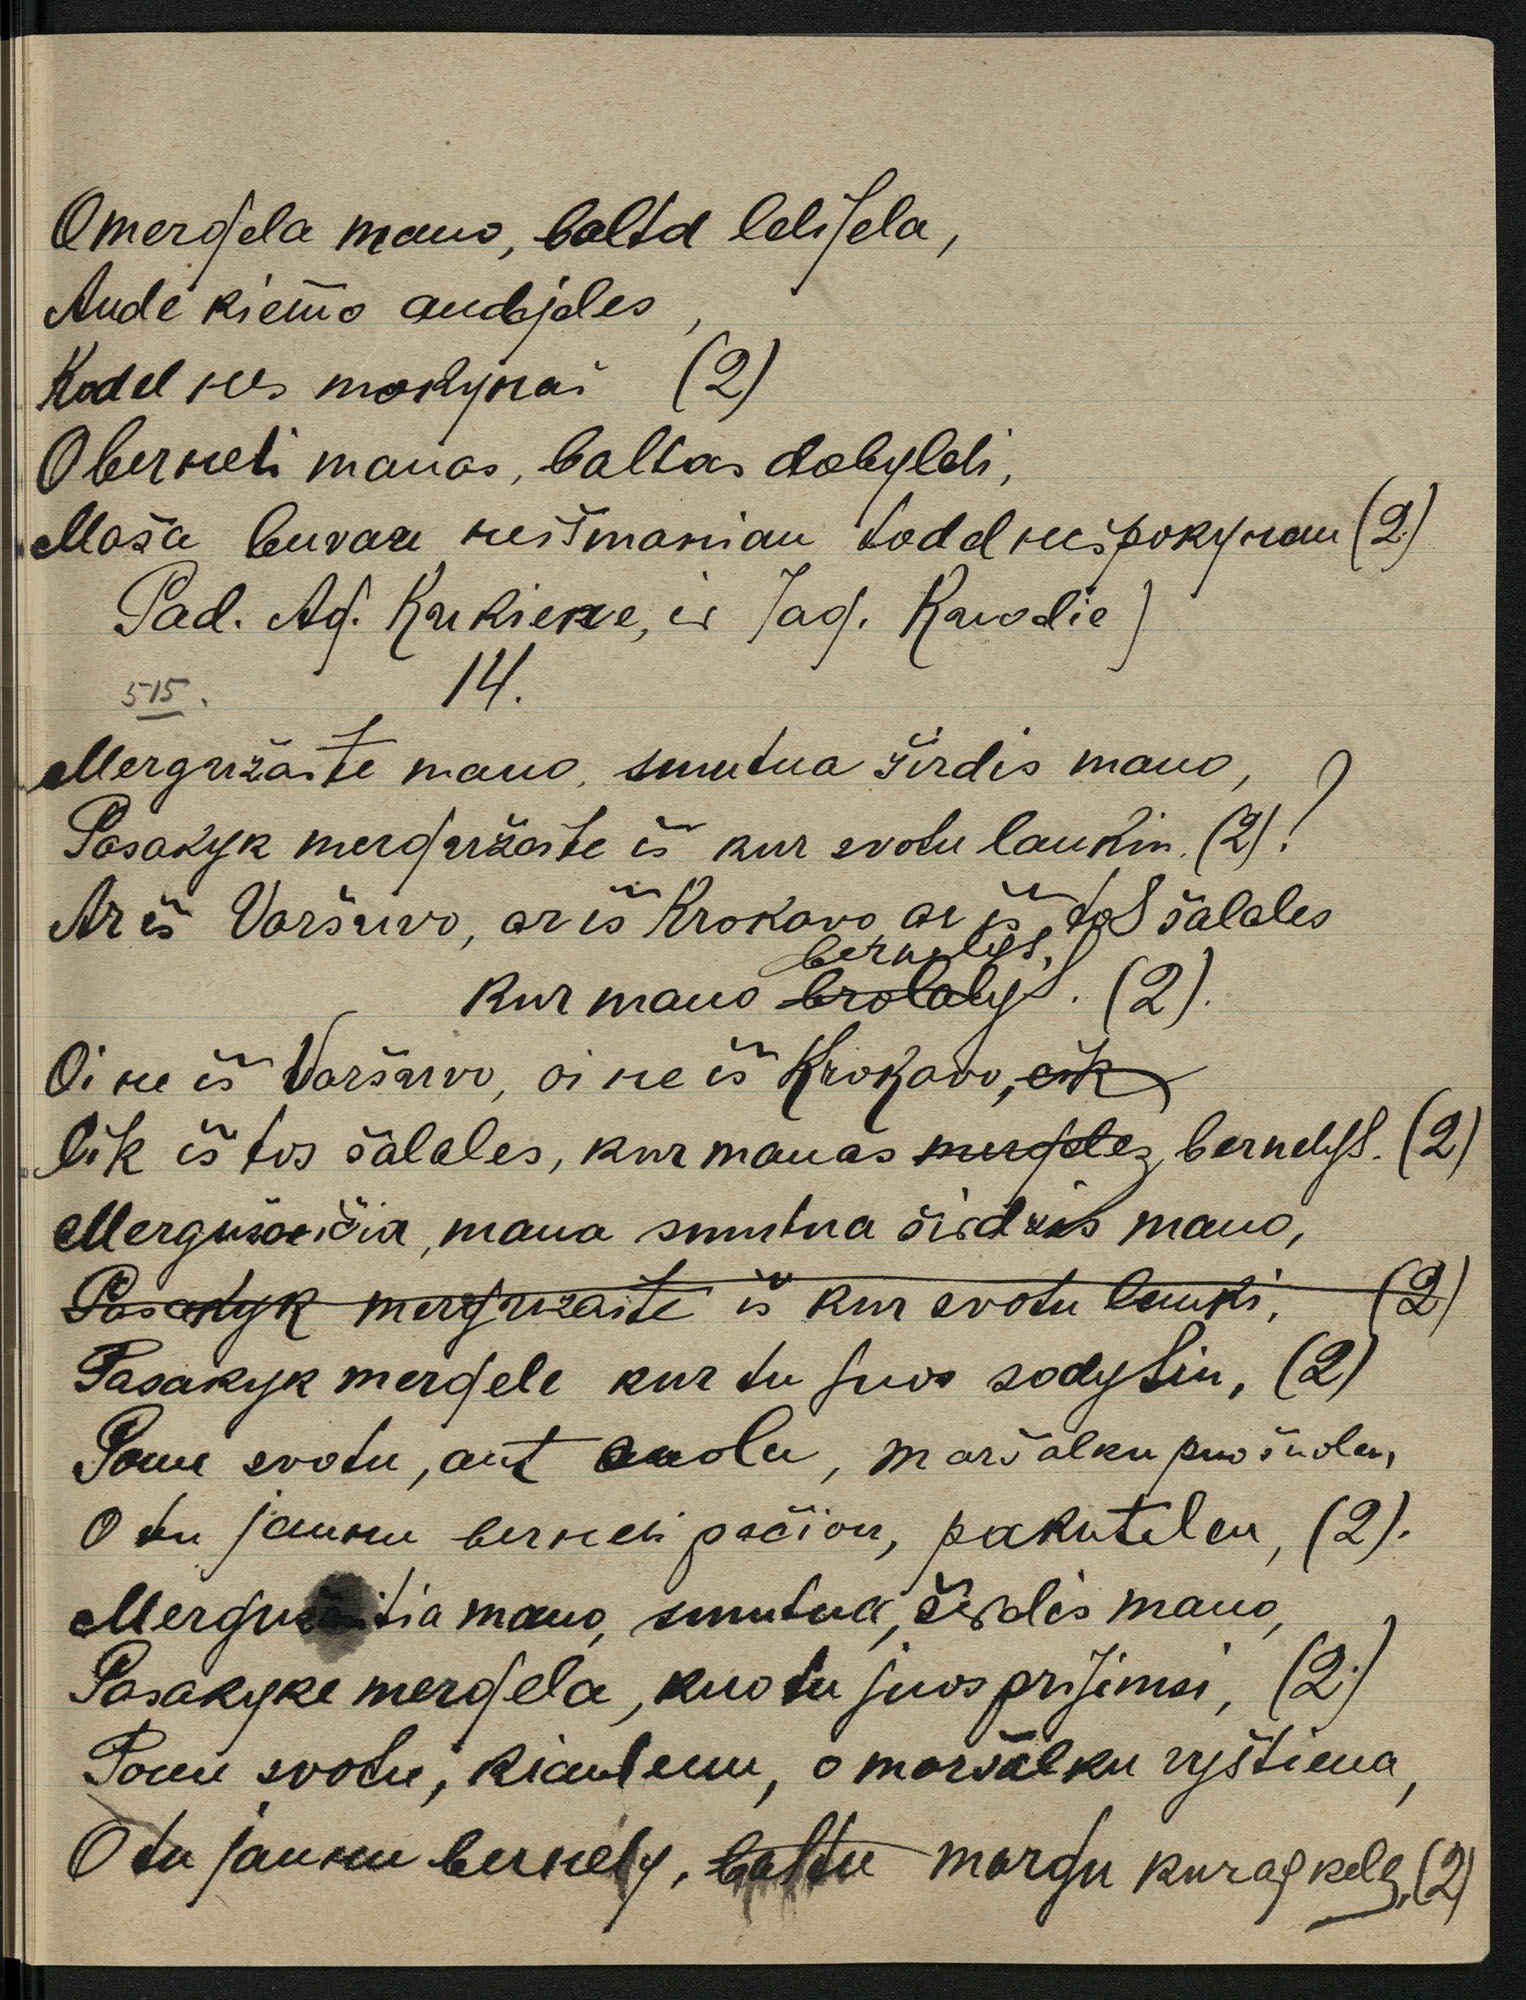 O mergela mano, balta lelijela,
Audė kiemo audėjeles,
Kodel nesmokynai (2)
O berneli manas, baltas dobyleli,
Maža buvau neišmaniau todel nespokynau (2)
Pad. Ag. Kukiene, ir Jag. Kuodie)
515. 14.
Mergužaite mano, smutna širdis mano,
Pasakyk merguzaite iš kur svotu laukin. (2)?
Ar iš Varšuvo, ar iš Krokavo ar iš tos šalales
bernelys.
kur mano brolalys. (2).
Oi ne iš Varšuvo, oi ne iš Krokavo,
lik iš tos šalales, kur manas mergelez bernelys. (2)
mana smutna širdzis mano,
Pasakyk mergužaite iš kur svotu lauki, (2)
Pasakyk mergele kur tu juos sodysiu, (2)
Ponu svotu, ant suolu, maršalku puo šuolu,
O tu jaunu berneli pačion, pakutelen, (2).
mano, smutna, širdis mano,
Pasakyke mergela, kuo tu juos prijimsi, (2)
Ponu svotu, kiautenu, o maršalku vyštiena,
O tu jaunu bernely, baltu margu kuragkelę, (2)